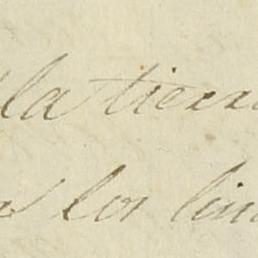 la tierra
los lim